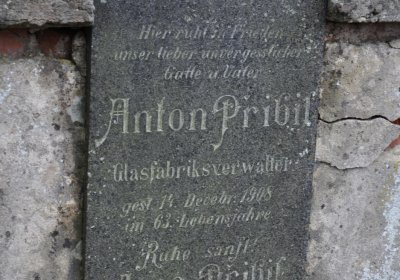 Hier ruht in Frieden
unser lieber unvergesslicher
Gatte u. Vater
Anton Pribil
Glasfabriksverwalter
gest. 14. Decebr. 1908
im 63. Lebensjahre
Ruhe sanft!
Pribil